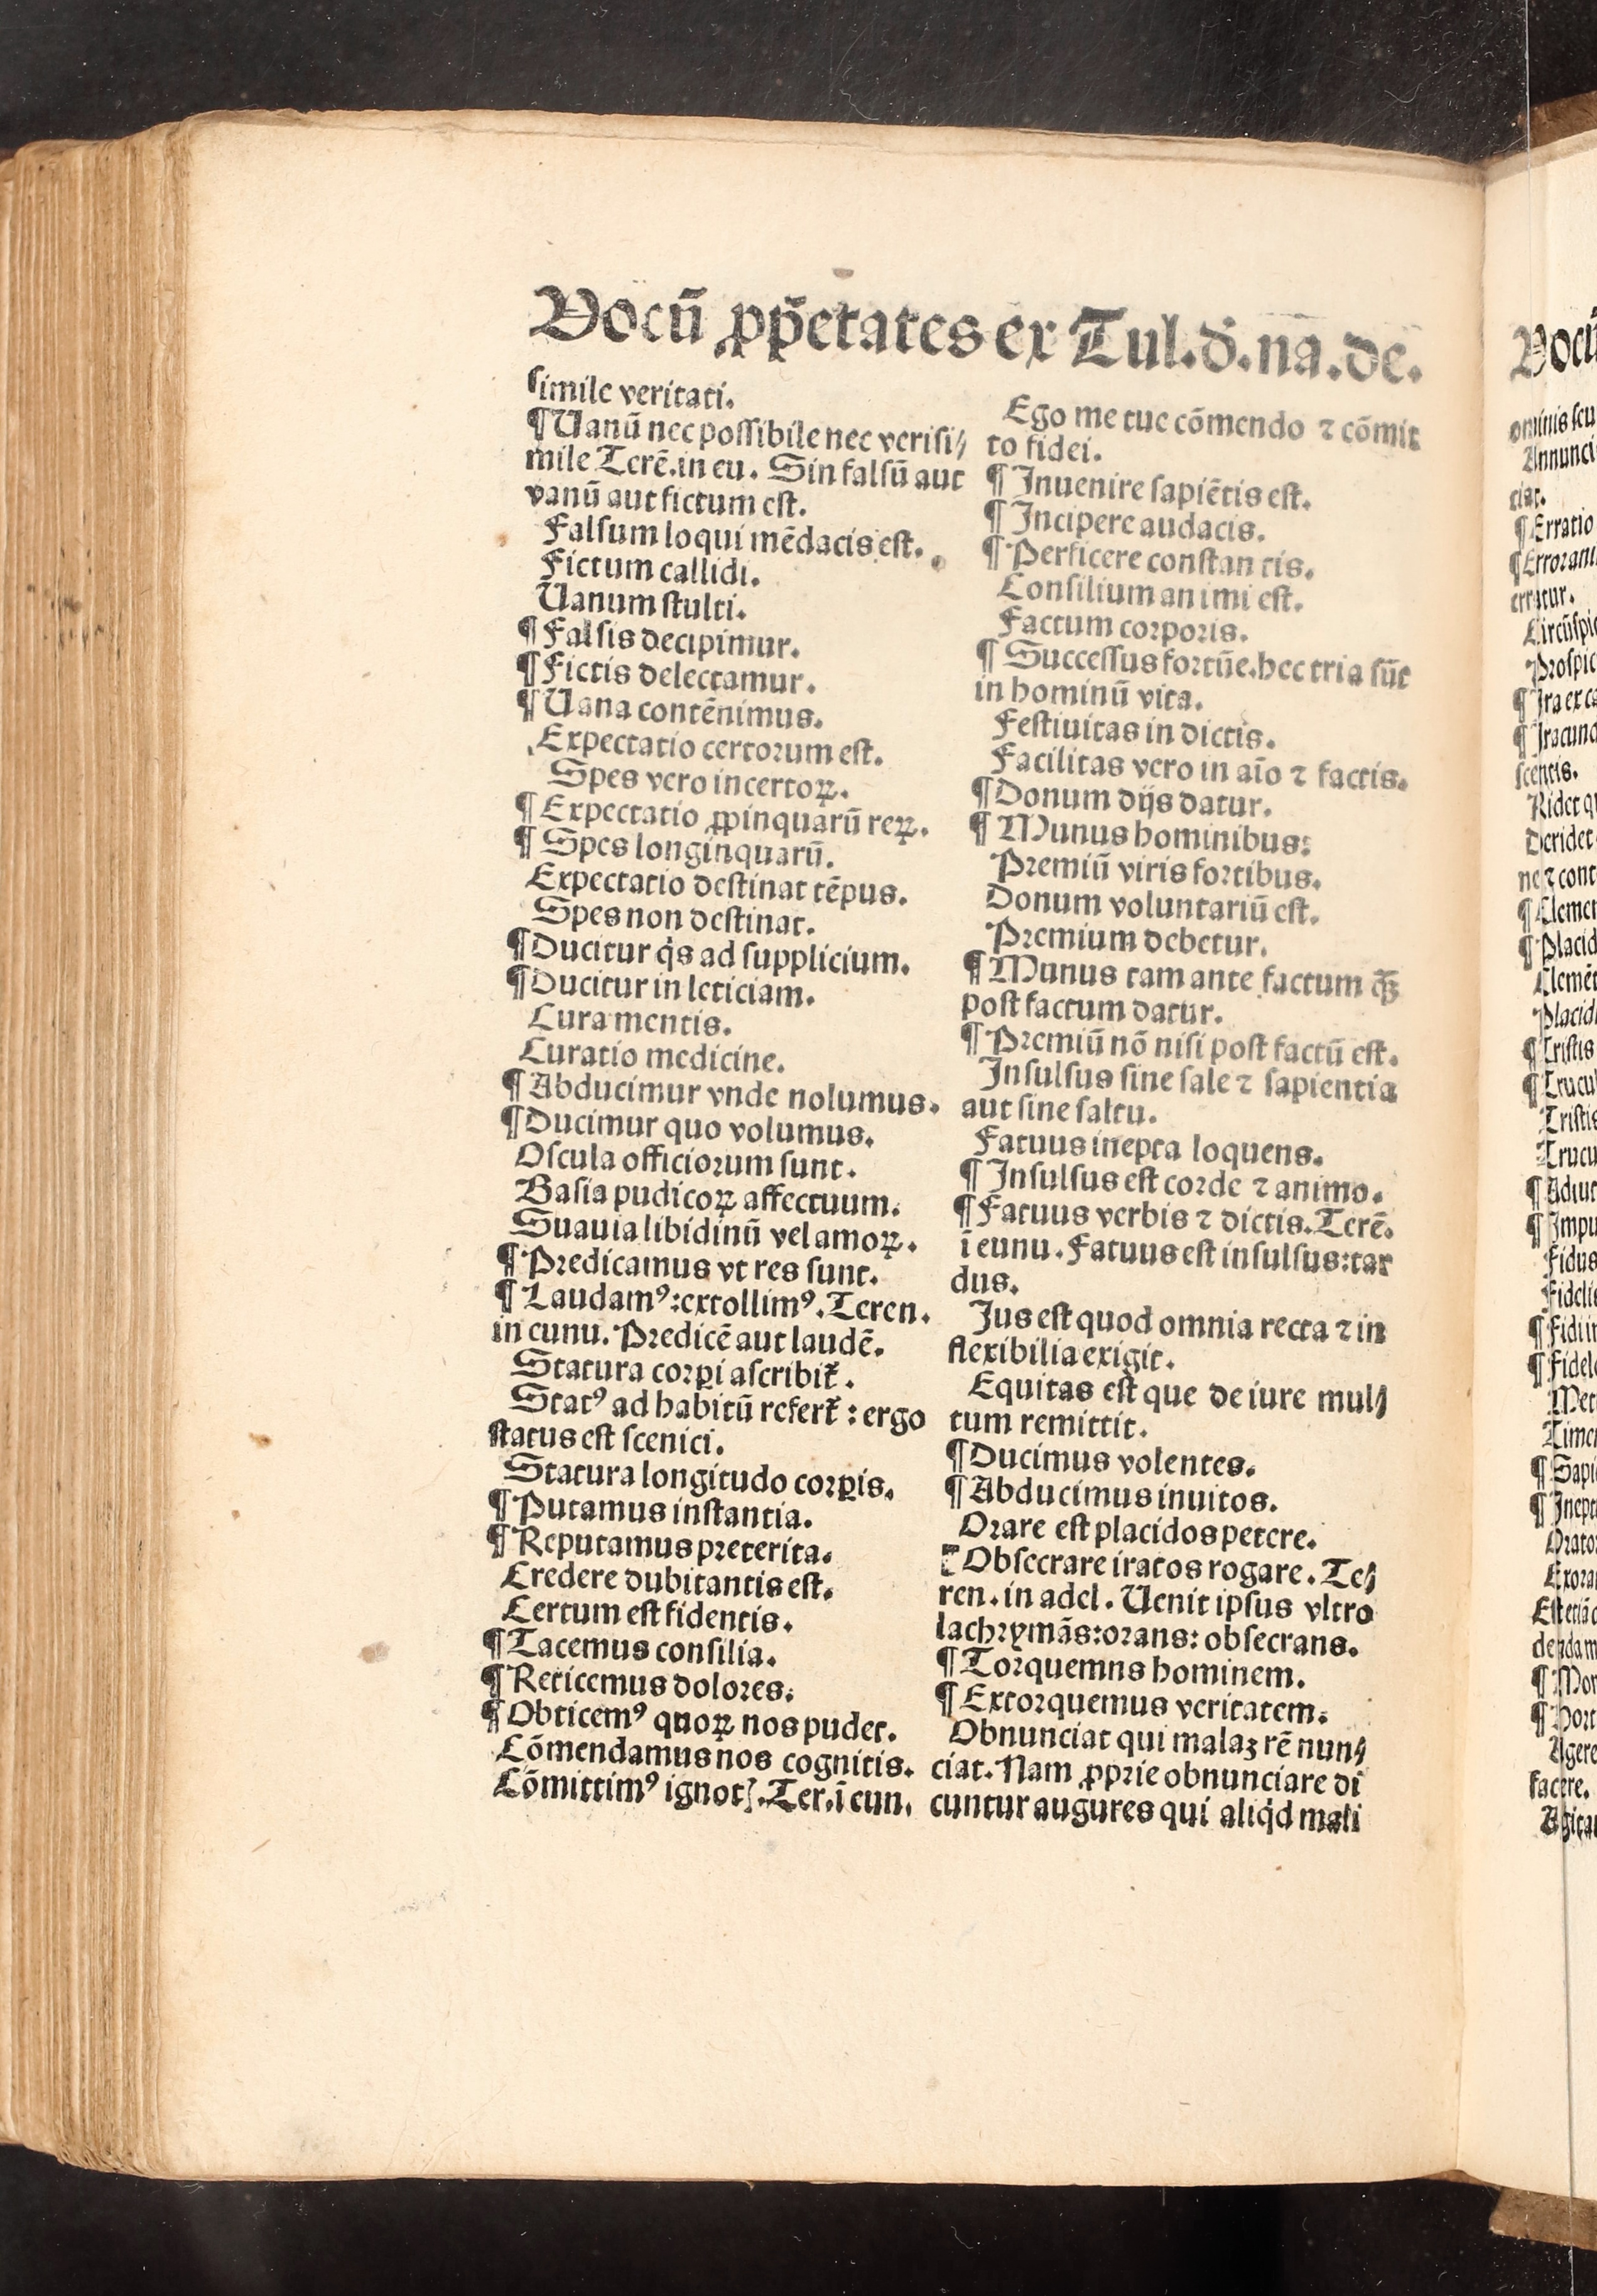 Vocū ꝓpētates ex Tul.đ.na.de.
simile veritati.
¶ Uanū nec possibile nec verisi⸗
mile Terē.in eu. Sin falsū aut
vanū aut fictum est.
Falsum loqui mēdacis est.
Fictum callidi.
Uanum stulti.
¶ Falsis decipimur.
¶ Fictis delectamur.
¶ Uana contēnimus.
Expectatio certorum est.
Spes vero incertoꝝ.
¶ Expectatio ꝓpinquarū reꝝ.
¶ Spes longinquarū.
Expectatio destinat tēpus.
Spes non destinat.
¶ Ducitur q̇s ad supplicium.
¶ Ducitur in leticiam.
Cura mentis.
Curatio medicine.
¶ Abducimur vnde nolumus.
¶ Ducimur quo volumus.
Oscula officiorum sunt.
Basia pudicoꝝ affectuum.
Suauia libidinū vel amoꝝ.
¶ Predicamus vt res sunt.
¶ Laudamꝰ:extollimꝰ.Teren.
in eunu. Predicē aut laudē.
Statura corꝑi ascribit̃.
Statꝰ ad habitū refert̃ : ergo
status est scenici.
Statura longitudo corꝑis.
¶ Putamus instantia.
¶ Reputamus preterita.
Credere dubitantis est.
Certum est fidentis.
¶ Tacemus consilia.
¶ Reticemus dolores.
¶ Obticemꝰ quoꝝ nos pudet.
Cōmendamus nos cognitis.
Cōmittimꝰ ignotꝭ.Ter.ī eun.
Ego me tue cōmendo ⁊ cōmit
to fidei.
¶ Inuenire sapiētis est.
¶ Incipere audacis.
¶ Perficere constan tis.
Consilium an imi est.
Factum corporis.
¶ Successus fortūe.hec tria sūt
in hominū vita.
Festiuitas in dictis.
Facilitas vero in aīo ⁊ factis.
¶ Donum dijs datur.
¶ Munus hominibus:
Premiū viris fortibus.
Donum voluntariū est.
Premium debetur.
¶ Munus tam ante factum q̃ꝫ
post factum datur.
¶ Premiū nō nisi post factū est.
Insulsus sine sale ⁊ sapientia
aut sine saltu.
Fatuus inepta loquens.
¶ Insulsus est corde ⁊ animo.
¶ Fatuus verbis ⁊ dictis.Terē.
ī eunu. Fatuus est insulsus:tar
dus.
Jus est quod omnia recta ⁊ in
flexibilia exigit.
Equitas est que de iure mul⸗
tum remittit.
¶ Ducimus volentes.
¶ Abducimus inuitos.
Orare est placidos petere.
¶ Obsecrare iratos rogare. Te⸗
ren. in adel. Uenit ipsus vltro
lachrymās:orans: obsecrans.
¶ Torquemns hominem.
¶ Extorquemus veritatem.
Obnunciat qui malaꝫ rē nun⸗
ciat. Nam ꝓprie obnunciare di
cuntur augures qui aliq̇d mali
Vocū
ominis seu
Annunci
ciat.
¶ Erratio
erratur.
Circūspic
Prospic
¶ Ira ex ca
¶ Iracund
scentis.
Ridet q
deridet
ne ⁊ cont
¶ Clemen
¶ Placid
Clemēt
Placid
¶ Tristis
¶ Trucul
Tristis
Trucu
¶ Adiut
¶ Impu
Fidus
Fidelis
¶ Fidi in
¶ Fidele
Met
Timer
¶ Sapi
¶ Inept
Orator
Exora
Est etiā
dendam
¶ Mor
¶ Hort
Agere
facere.
Agitar